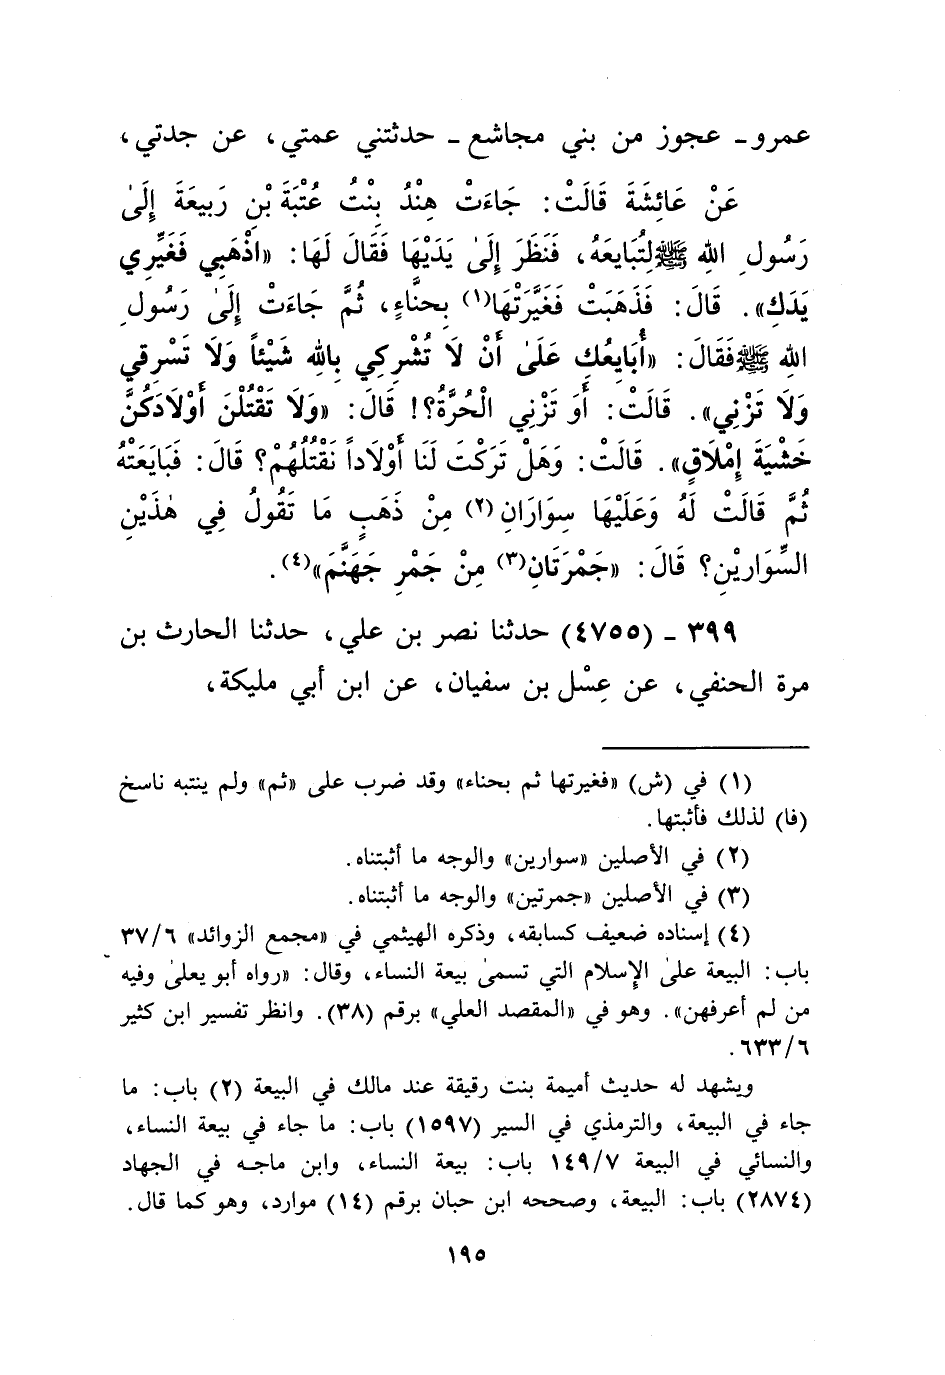 عمرو - عجوز من بني مجاشع - حدثتني عمتي، عن جدتي،
عَنْ عَائِشَةَ قَالَتْ: جَاءَتْ هِنْدُ بِنْتُ عُتْبَةَ بْنِ رَبِيعَةَ إِلَىٰ
رَسُولِ اللهِ ﷺ لِتُبَايِعَهُ، فَنَظَرَ إِلَىٰ يَدَيْهَا فَقَالَ لَهَا: «اذْهَبِي فَغَيِّرِي
يَدَكِ». قَالَ: فَذَهَبَتْ فَغَيَّرَتْهَا(١) بِحِنَّاءٍ، ثُمَّ جَاءَتْ إِلَىٰ رَسُولِ
اللهِ ﷺ فَقَالَ: «أُبَايِعُكِ عَلَىٰ أَنْ لَا تُشْرِكِي بِاللهِ شَيْئاً وَلَا تَسْرِقِي
وَلَا تَزْنِي». قَالَتْ: أَوَ تَزْنِي الْحُرَّةُ؟! قَالَ: «وَلَا تَقْتُلْنَ أَوْلَادَكُنَّ
خَشْيَةَ إِمْلَاقٍ». قَالَتْ: وَهَلْ تَرَكْتَ لَنَا أَوْلَاداً نَقْتُلُهُمْ؟ قَالَ: فَبَايَعَتْهُ
ثُمَّ قَالَتْ لَهُ وَعَلَيْهَا سِوَارَانِ(٢) مِنْ ذَهَبٍ مَا تَقُولُ فِي هٰذَيْنِ
السِّوَارَيْنِ؟ قَالَ: «جَمْرَتَانِ(٣) مِنْ جَمْرِ جَهَنَّمَ»(٤).
٣٩٩ - (٤٧٥٥) حدثنا نصر بن علي، حدثنا الحارث بن
مرة الحنفي، عن عِسْل بن سفيان، عن ابن أبي مليكة،
(١) في (ش) «فغيرتها ثم بحناء» وقد ضرب على «ثم» ولم ينتبه ناسخ
(فا) لذلك فأثبتها.
(٢) في الأصلين «سوارين» والوجه ما أثبتناه.
(٣) في الأصلين «جمرتين» والوجه ما أثبتناه.
(٤) إسناده ضعيف كسابقه، وذكره الهيثمي في «مجمع الزوائد» ٣٧/٦
باب: البيعة علىٰ الإسلام التي تسمىٰ بيعة النساء، وقال: «رواه أبو يعلىٰ وفيه
من لم أعرفهن». وهو في «المقصد العلي» برقم (٣٨). وانظر تفسير ابن كثير
٦٣٣/٦.
ويشهد له حديث أميمة بنت رقيقة عند مالك في البيعة (٢) باب: ما
جاء في البيعة، والترمذي في السير (١٥٩٧) باب: ما جاء في بيعة النساء،
والنسائي في البيعة ١٤٩/٧ باب: بيعة النساء، وابن ماجه في الجهاد
(٢٨٧٤) باب: البيعة، وصححه ابن حبان برقم (١٤) موارد، وهو كما قال.
١٩٥